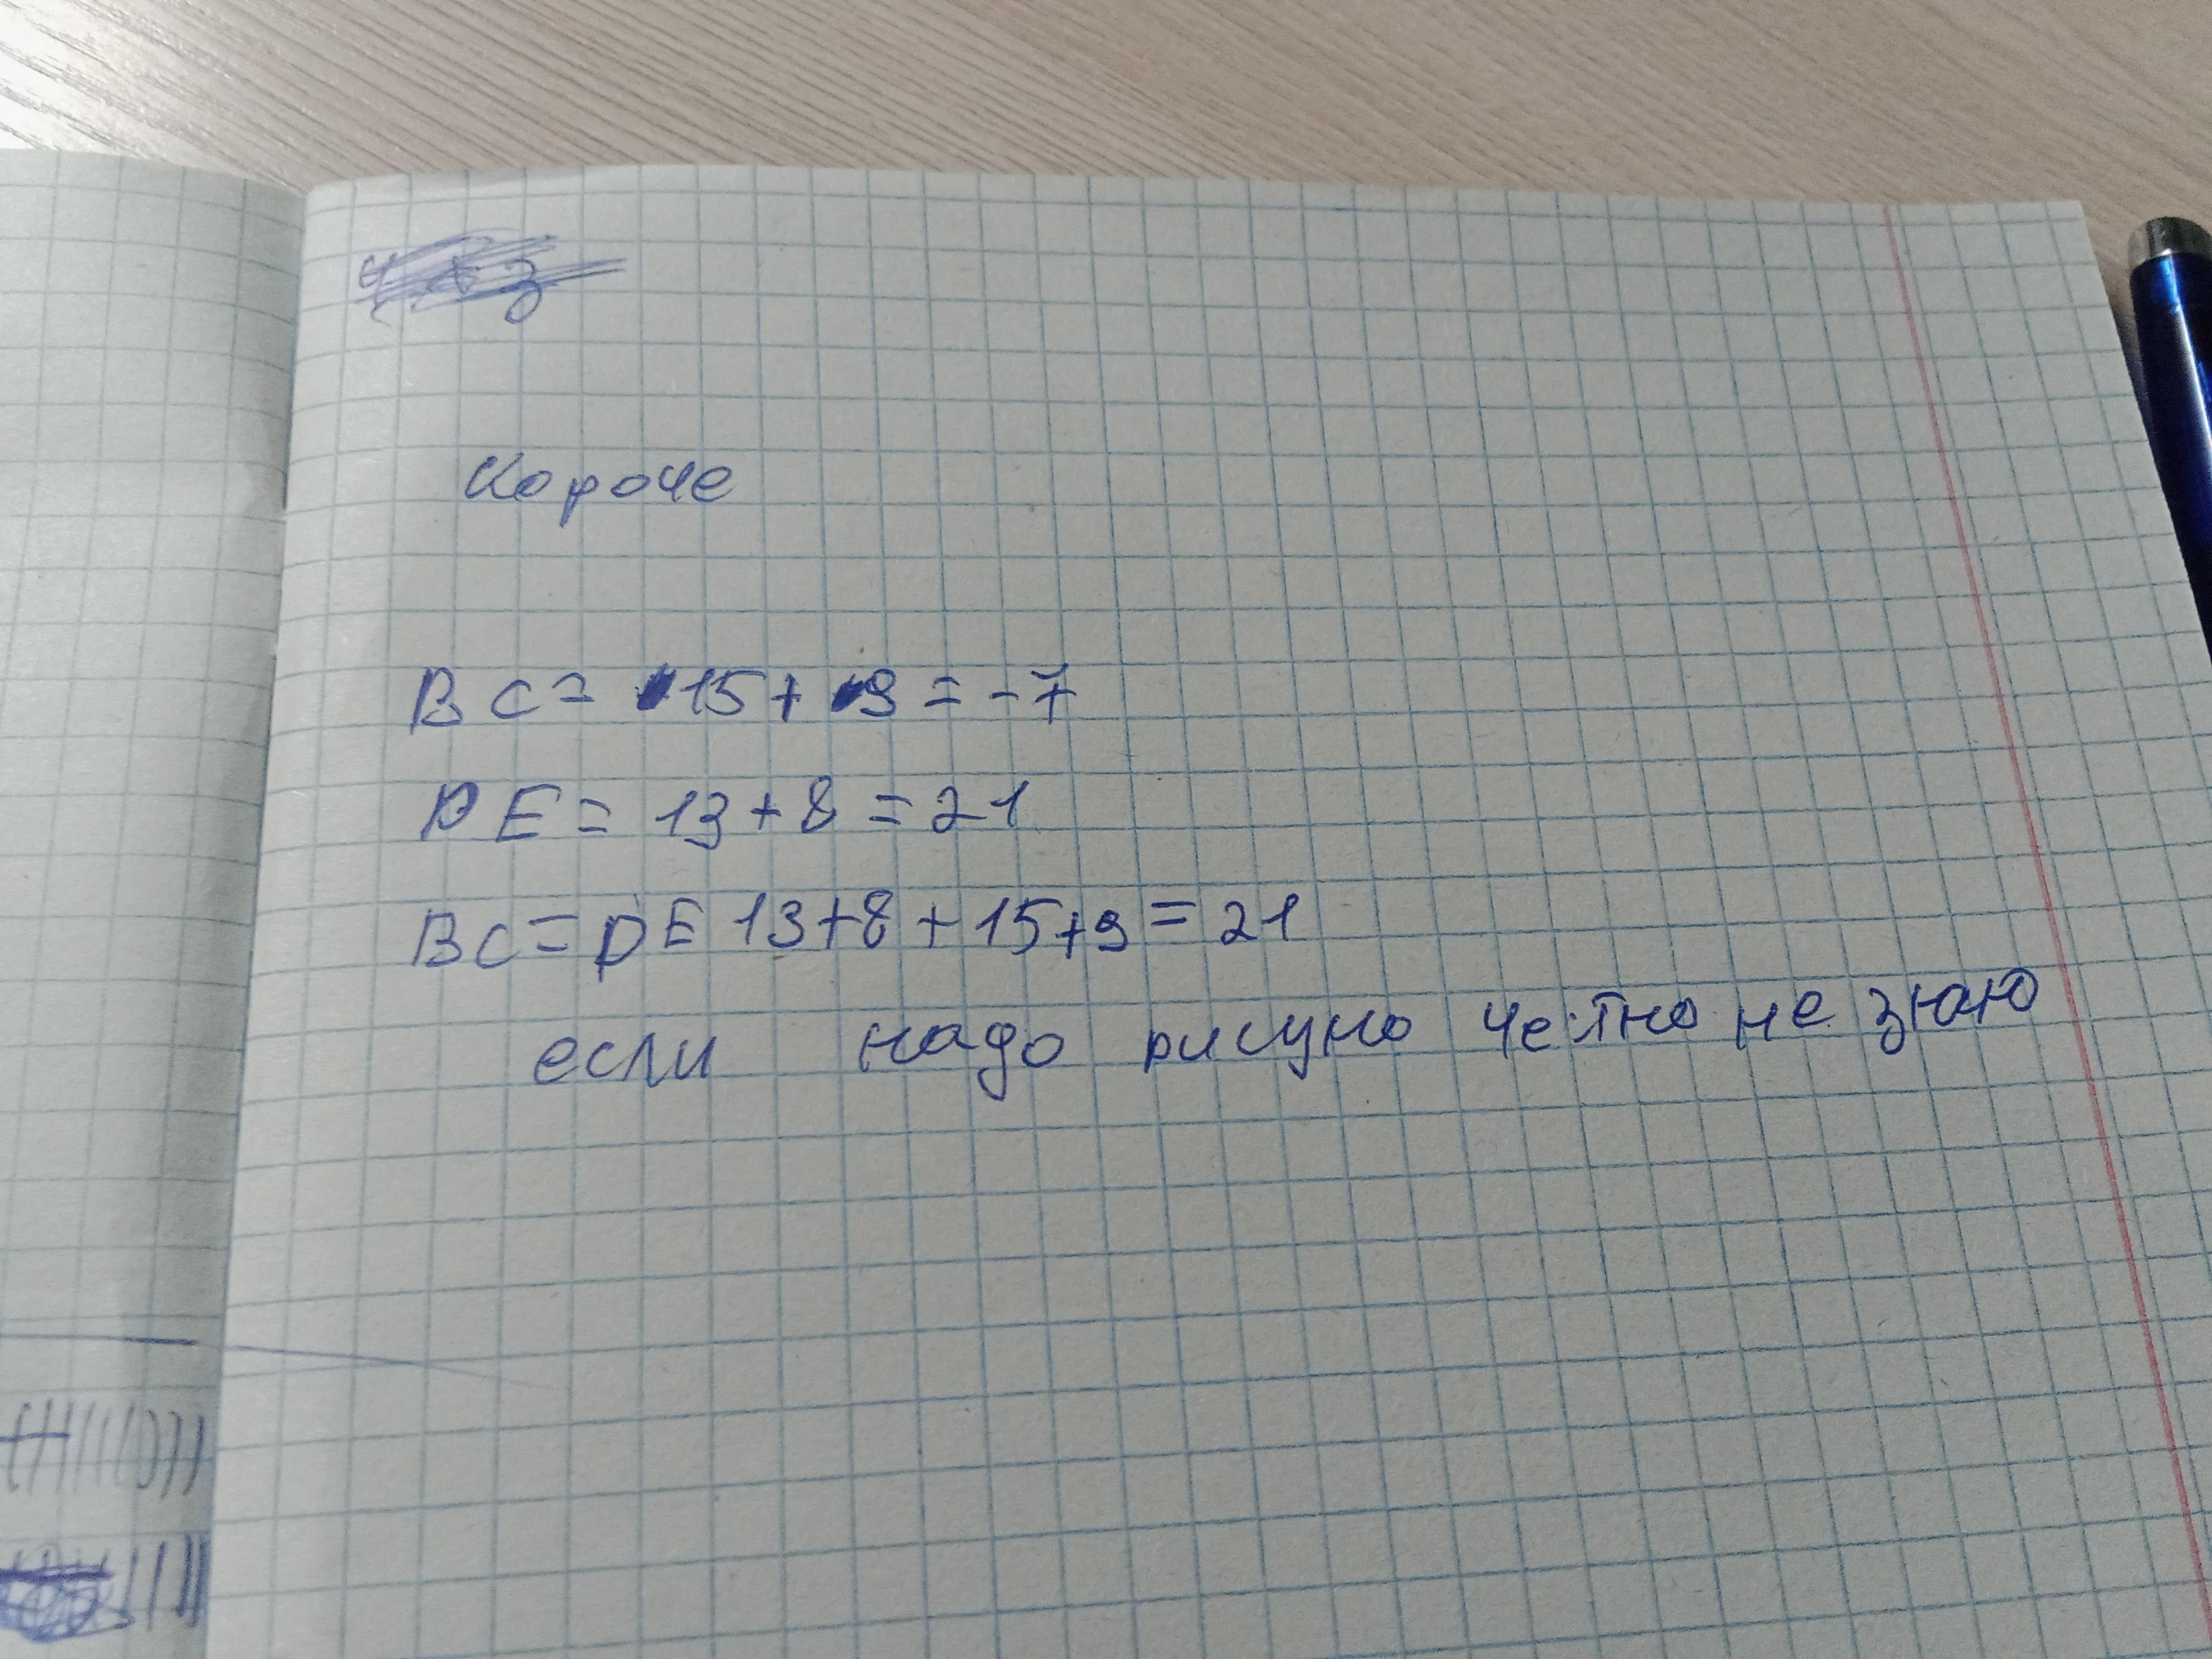 Короче
BC= 15+9=-7
DE= 13+8=21
BC=DE 13+8+15+9=21
если надо рисуно чемтно не знаю